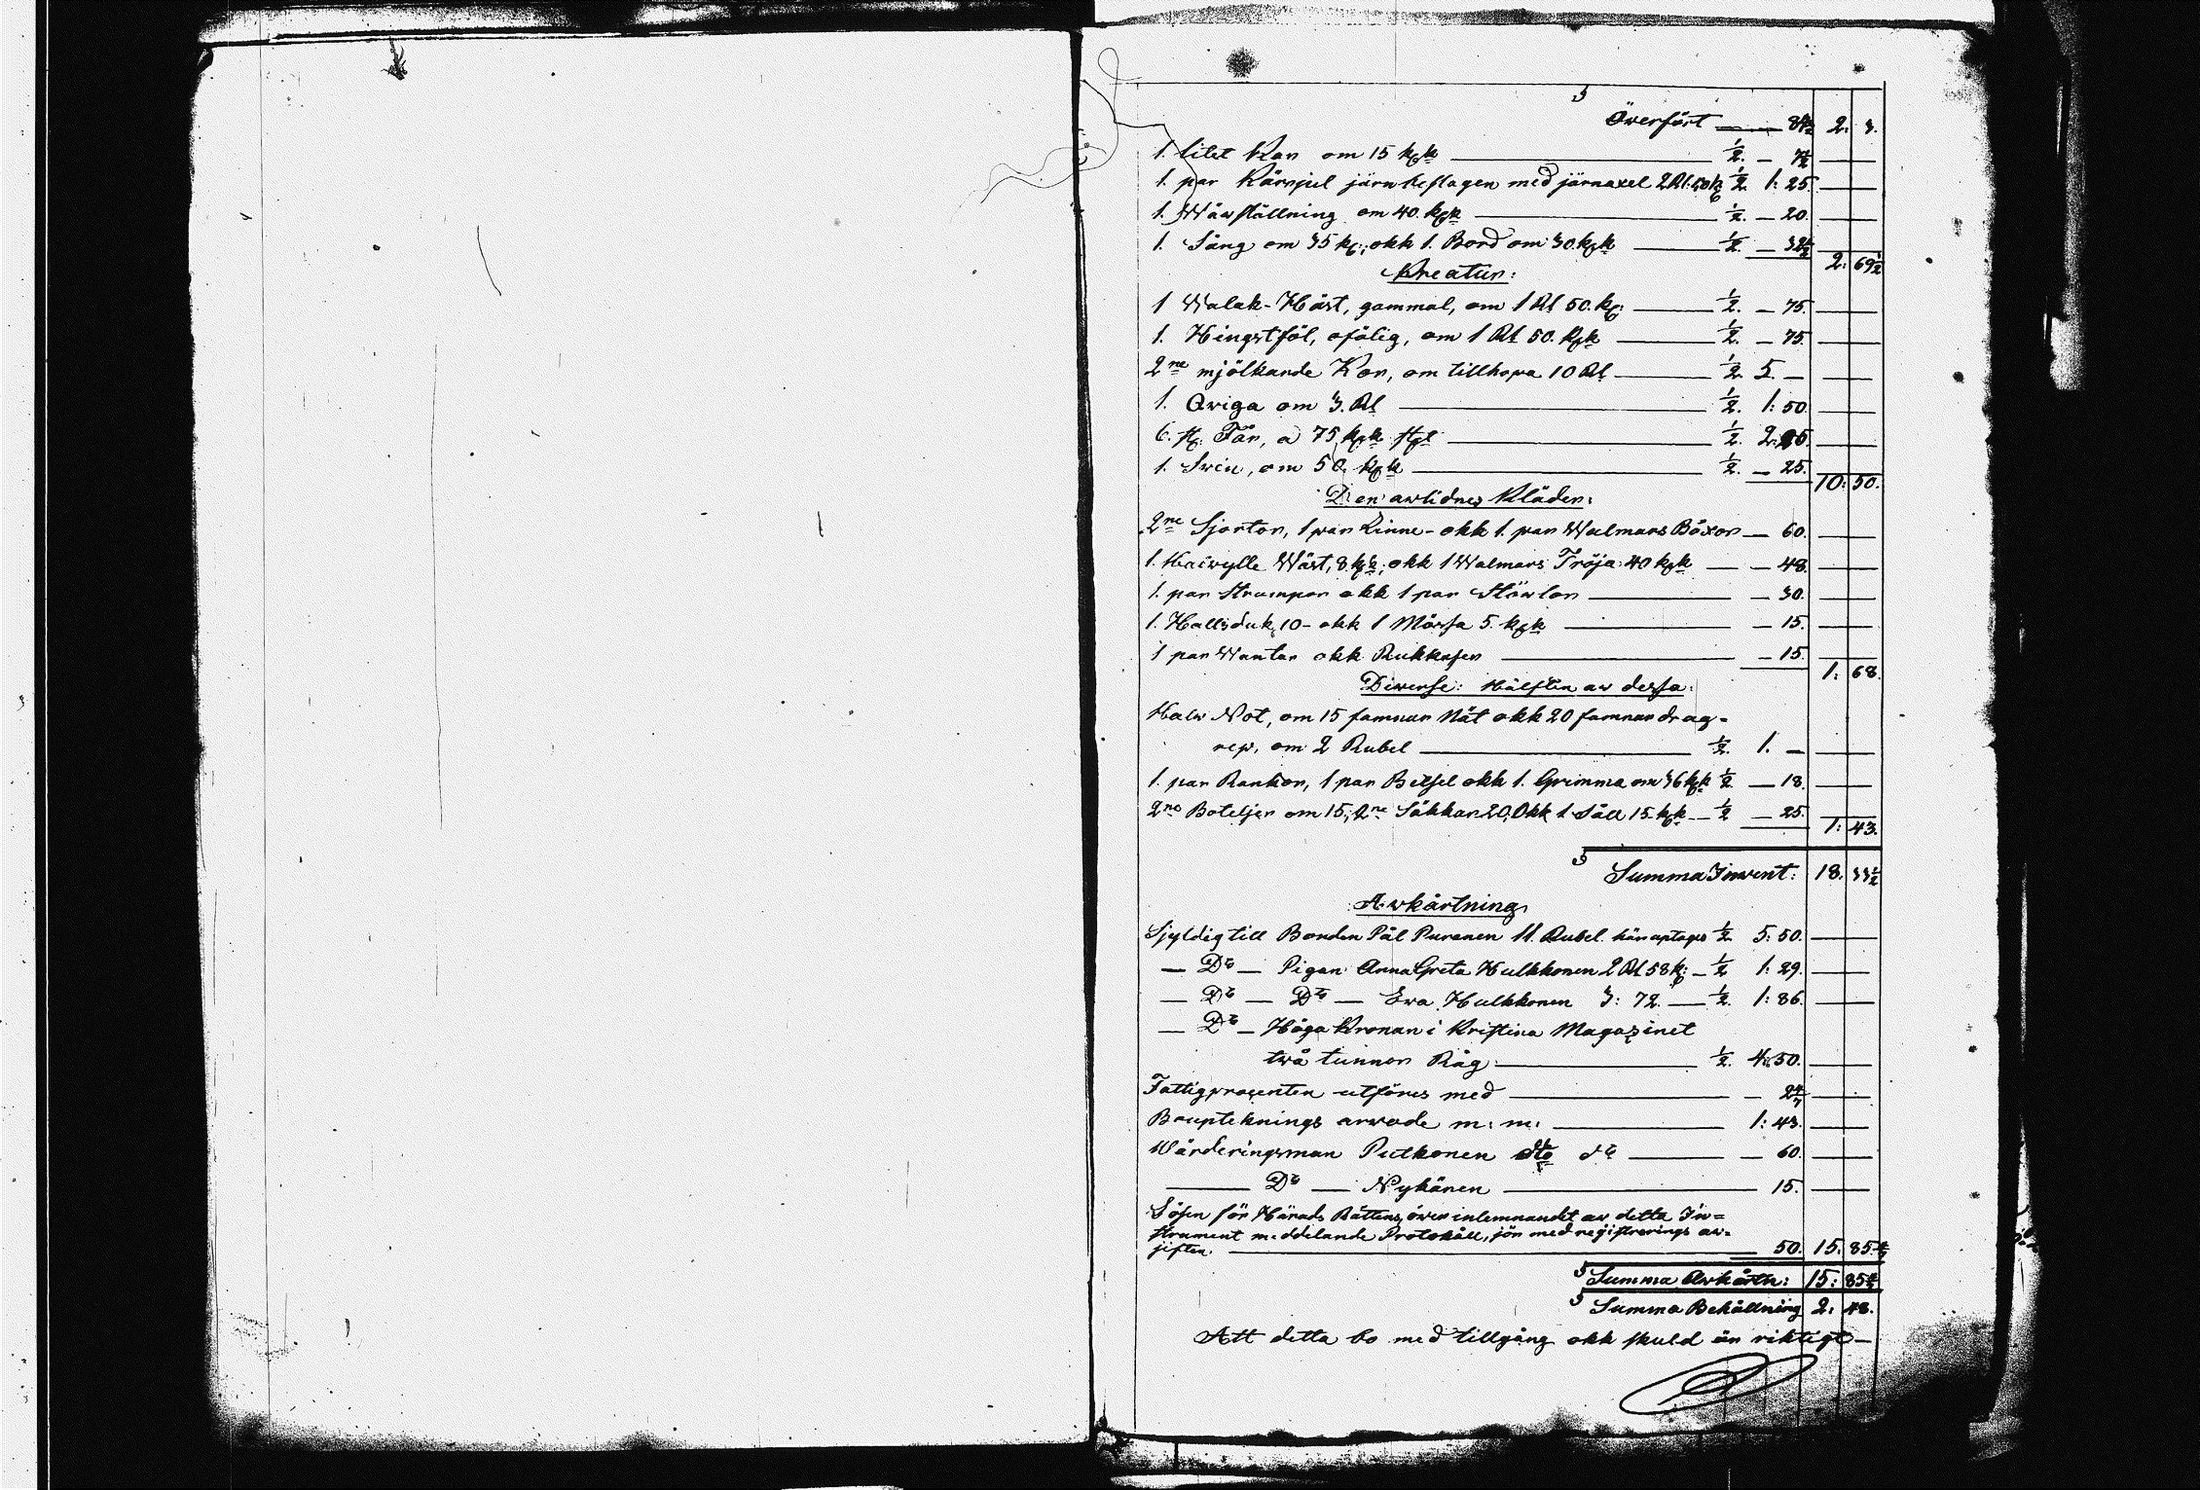 Överfört — 84½ 2: 3.
1. litet Kar om 15 kpk — ½. — 7½
1. par Kärrjul järnbeslagen med järnaxel 2 Rl: 50 k ½ 1: 25.
1. Wävställning om 40. kpk — ½. — 20.
1. Säng om 35 k; okk 1. Bord om 30. kpk — ½. — 32½ 2: 69½
Kreatur:
1 Walak-Häst, gammal, om 1 Rl 50. k: — ½. — 75.
1. Hingstföl, ofölig, om 1 Rl 50. kpk — ½. — 75.
2ne mjölkande Kor, om tillhopa 10 Rl — ½. 5. —
1. Qviga om 3. Rl — ½. 1: 50.
6. st. Får, a 75 kpk st — ½. 2: 25.
1. Svin, om 50. kpk — ½. — 25. 10: 50.
Den avlidnes Kläder:
2ne Sjortor, 1 par Linne- okk 1. par Walmars Böxor — 60.
1. Halvylle Wäst, 8. kpk; okk 1 Walmars Tröja 40 kpk — — 48.
1. par Strumpor okk 1 par Stövlor — — 30.
1. Hallsduk, 10- okk 1 Mössa 5. kpk — — 15.
1 par Wantar okk Rukkaser — — 15. 1: 68.
Diverse: Hälften av dessa:
Halv Not, om 15 famnar Nät okk 20 famnar drag-
rep, om 2 Rubel — ½. 1. —
1. par Rankor, 1 par Betsel okk 1. Grimma om 36 kpk ½ — 18.
2ne Boteljer om 15; 2ne Säkkar 20, Okk 1 Såll 15. kpk — ½ — 25. 1: 43.
Summa Invent: 18. 33½
Avkärtning
Sjyldig till Bonden Pål Puranen 11. Rubel. här uptages ½ 5: 50.
— Do — Pigan Anna Greta Hulkkonen 2 Rl 58 k: — ½ 1: 29.
— Do — Do — Eva Hulkkonen 3: 72. — ½. 1: 86.
— Do — Höga Kronan i Kristina Magazinet
två tunnor Råg — ½. 4: 50.
Fattigprocenten utföres med — — 2
Boupteknings arvode m: m: — 1: 43.
Wärderingsman Putkonen do — — 60.
— Do — Nykänen — 15.
Lösen för Härads Rättens över inlemnandet av detta In-
strument meddelande Protokåll, jön med registrerings av-
jiften. — 50. 15: 85
Summa Avkärtn: 15: 85
Summa Behållning 2: 48.
Att detta bo med tillgång okk skuld är riktigt —